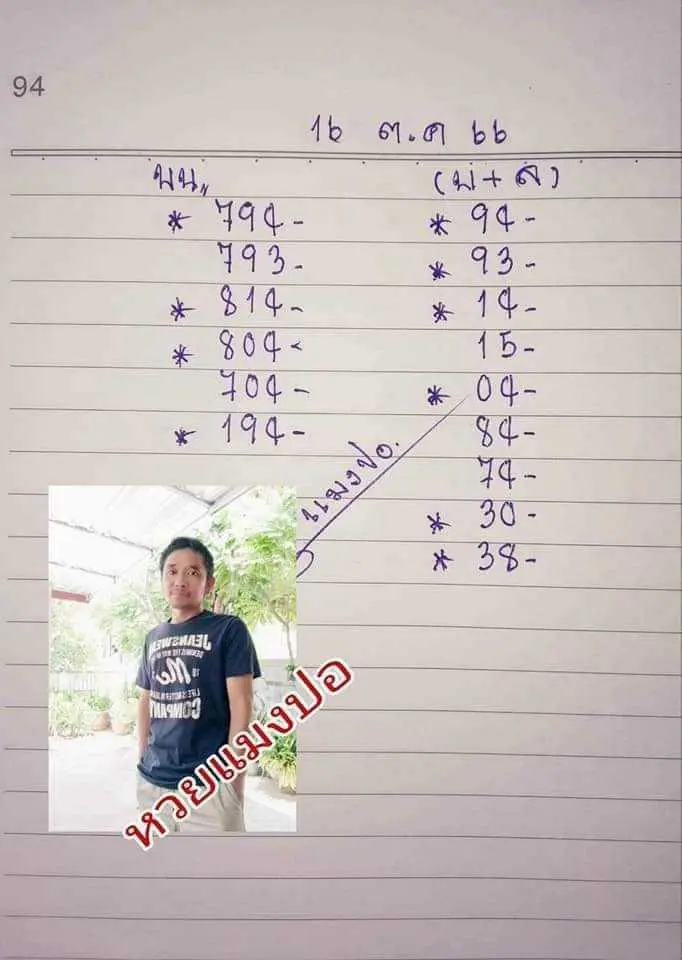 94
16 ต.ค 66
บน,, (บ+ล)
* 794- * 94-
793- * 93-
* 814- * 14-
* 804- 15-
704- * 04-
* 194- 84-
74-
* 30-
* 38-
แมงปอ.
JEANSWEAR
Me
COMPANY
หวยแมงปอ